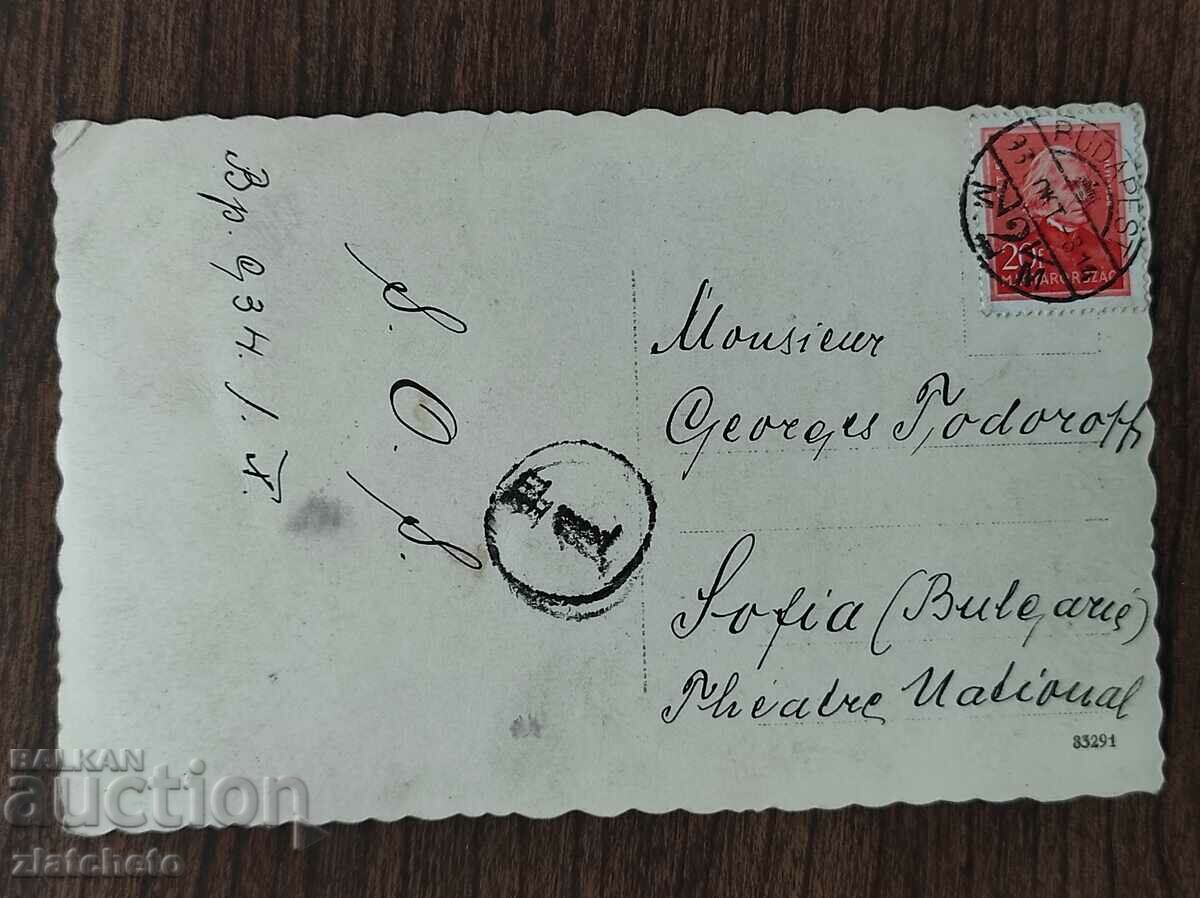 Bp. 934. I. 1.
S. O. S.
T
BUDAPEST
20f
MAGYARORSZÁG
Monsieur
Georges Todoroff
Sofia (Bulgarie)
Théatre National
83291
BALKAN
auction
zlatcheto